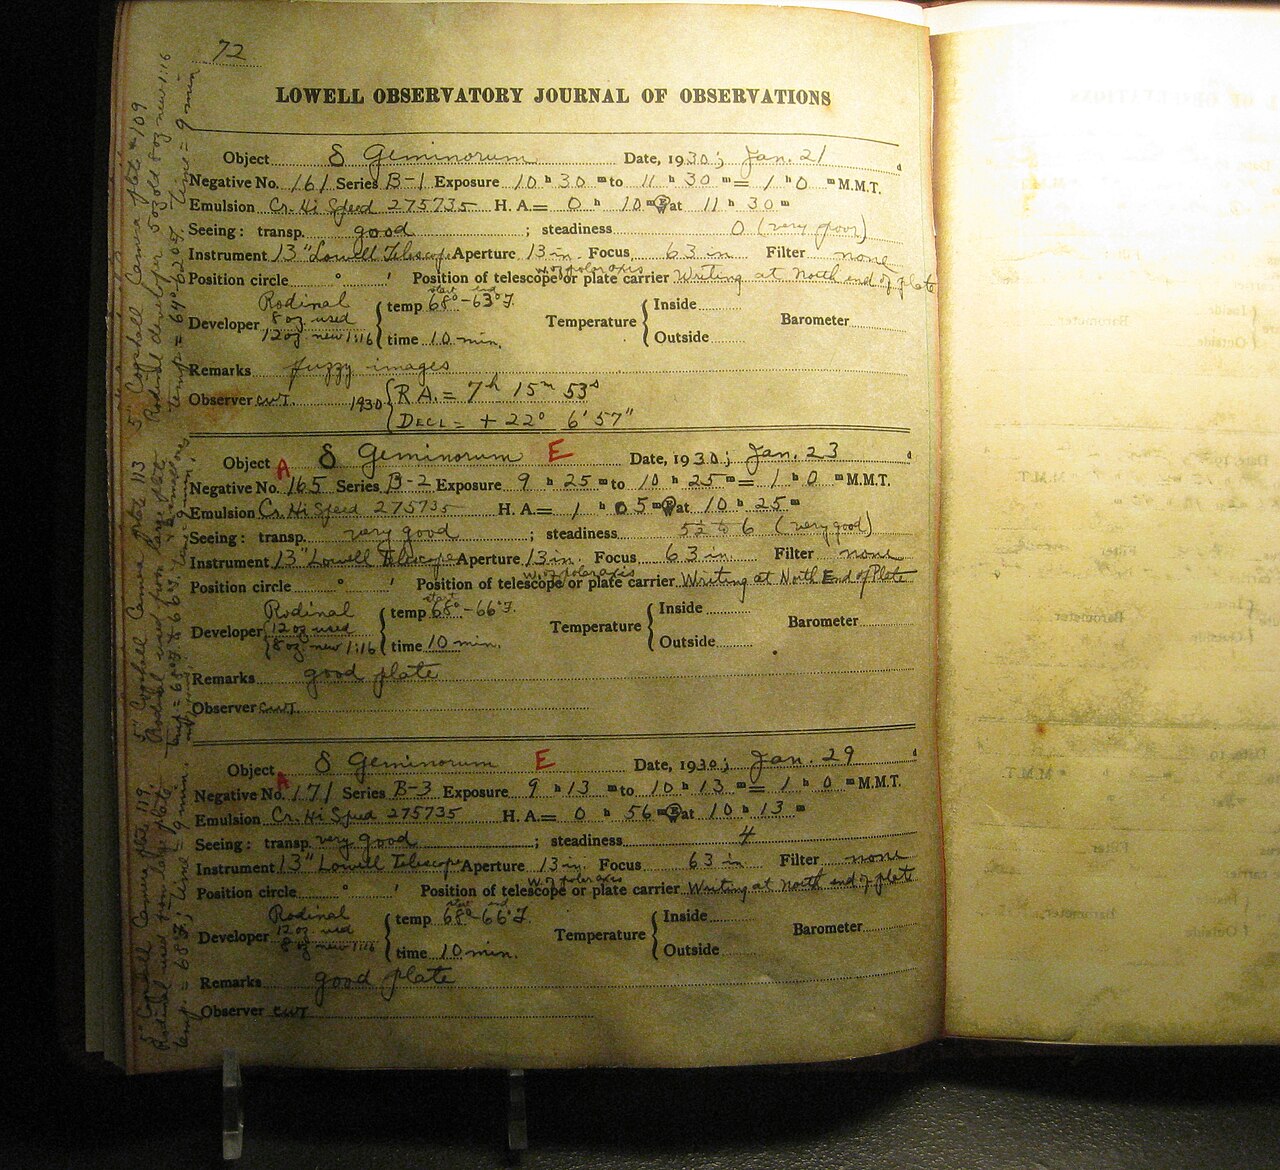 72
LOWELL OBSERVATORY JOURNAL OF OBSERVATIONS
Object δ Geminorum Date, 1930; Jan. 21 d
Negative No. 161 Series B-1 Exposure 10 h 30 m to 11 h 30 m = 1 h 0 m M.M.T.
Emulsion Cr. Hi Speed 275735 H. A = 0 h 10 m E W at 11 h 30 m
Seeing: transp. good ; steadiness 0 (very poor)
Instrument 13" Lowell Telescope Aperture 13 in. Focus 63 in Filter none
W. of polar axis
Position circle ° ' Position of telescope or plate carrier Writing at North end of plate
Developer Rodinal 8 oz used 12 oz. new 1:16
start end
temp 68° - 63° F.
time 10 min.
Temperature Inside Outside Barometer
Remarks fuzzy images
Observer CWT. 1930 R.A. = 7h 15m 53s
DECL = + 22° 6' 57"
Object A δ Geminorum E Date, 1930; Jan. 23 d
Negative No. 165 Series B-2 Exposure 9 h 25 m to 10 h 25 m = 1 h 0 m M.M.T.
Emulsion Cr. Hi Speed 275735 H. A = 1 h 05 m E W at 10 h 25 m
Seeing: transp. very good ; steadiness to 6 (very good)
Instrument 13" Lowell Telescope Aperture 13 in. Focus 63 in. Filter none
W. of polar axis
Position circle ° ' Position of telescope or plate carrier Writing at North End of Plate
Developer Rodinal 12 oz used 8 oz. new 1:16
start
temp 68° - 66° F.
time 10 min.
Temperature Inside Outside Barometer
Remarks good plate
Observer CWT.
Object A δ Geminorum E Date, 1930; Jan. 29 d
Negative No. 171 Series B-3 Exposure 9 h 13 m to 10 h 13 m = 1 h 0 m M.M.T.
Emulsion Cr. Hi Speed 275735 H. A = 0 h 56 m E W at 10 h 13 m
Seeing: transp. very good ; steadiness 4
Instrument 13" Lowell Telescope Aperture 13 in. Focus 63 in Filter none
W. of polar axis
Position circle ° ' Position of telescope or plate carrier Writing at North end of plate
Developer Rodinal 12 oz. used 8 oz new 1:16
start end
temp 68° - 66° F.
time 10 min.
Temperature Inside Outside Barometer
Remarks good plate
Observer CWT
5" Cogshall Camera plate # 109
Rodinal developer 5 oz old 8 oz new 1:16
temp = time = 9 min
5" Cogshall Camera plate 113
Rodinal used from large plate
5" Cogshall Camera plate 119.
Rodinal used from large plate
temp. = 68° F; time = 9 min.